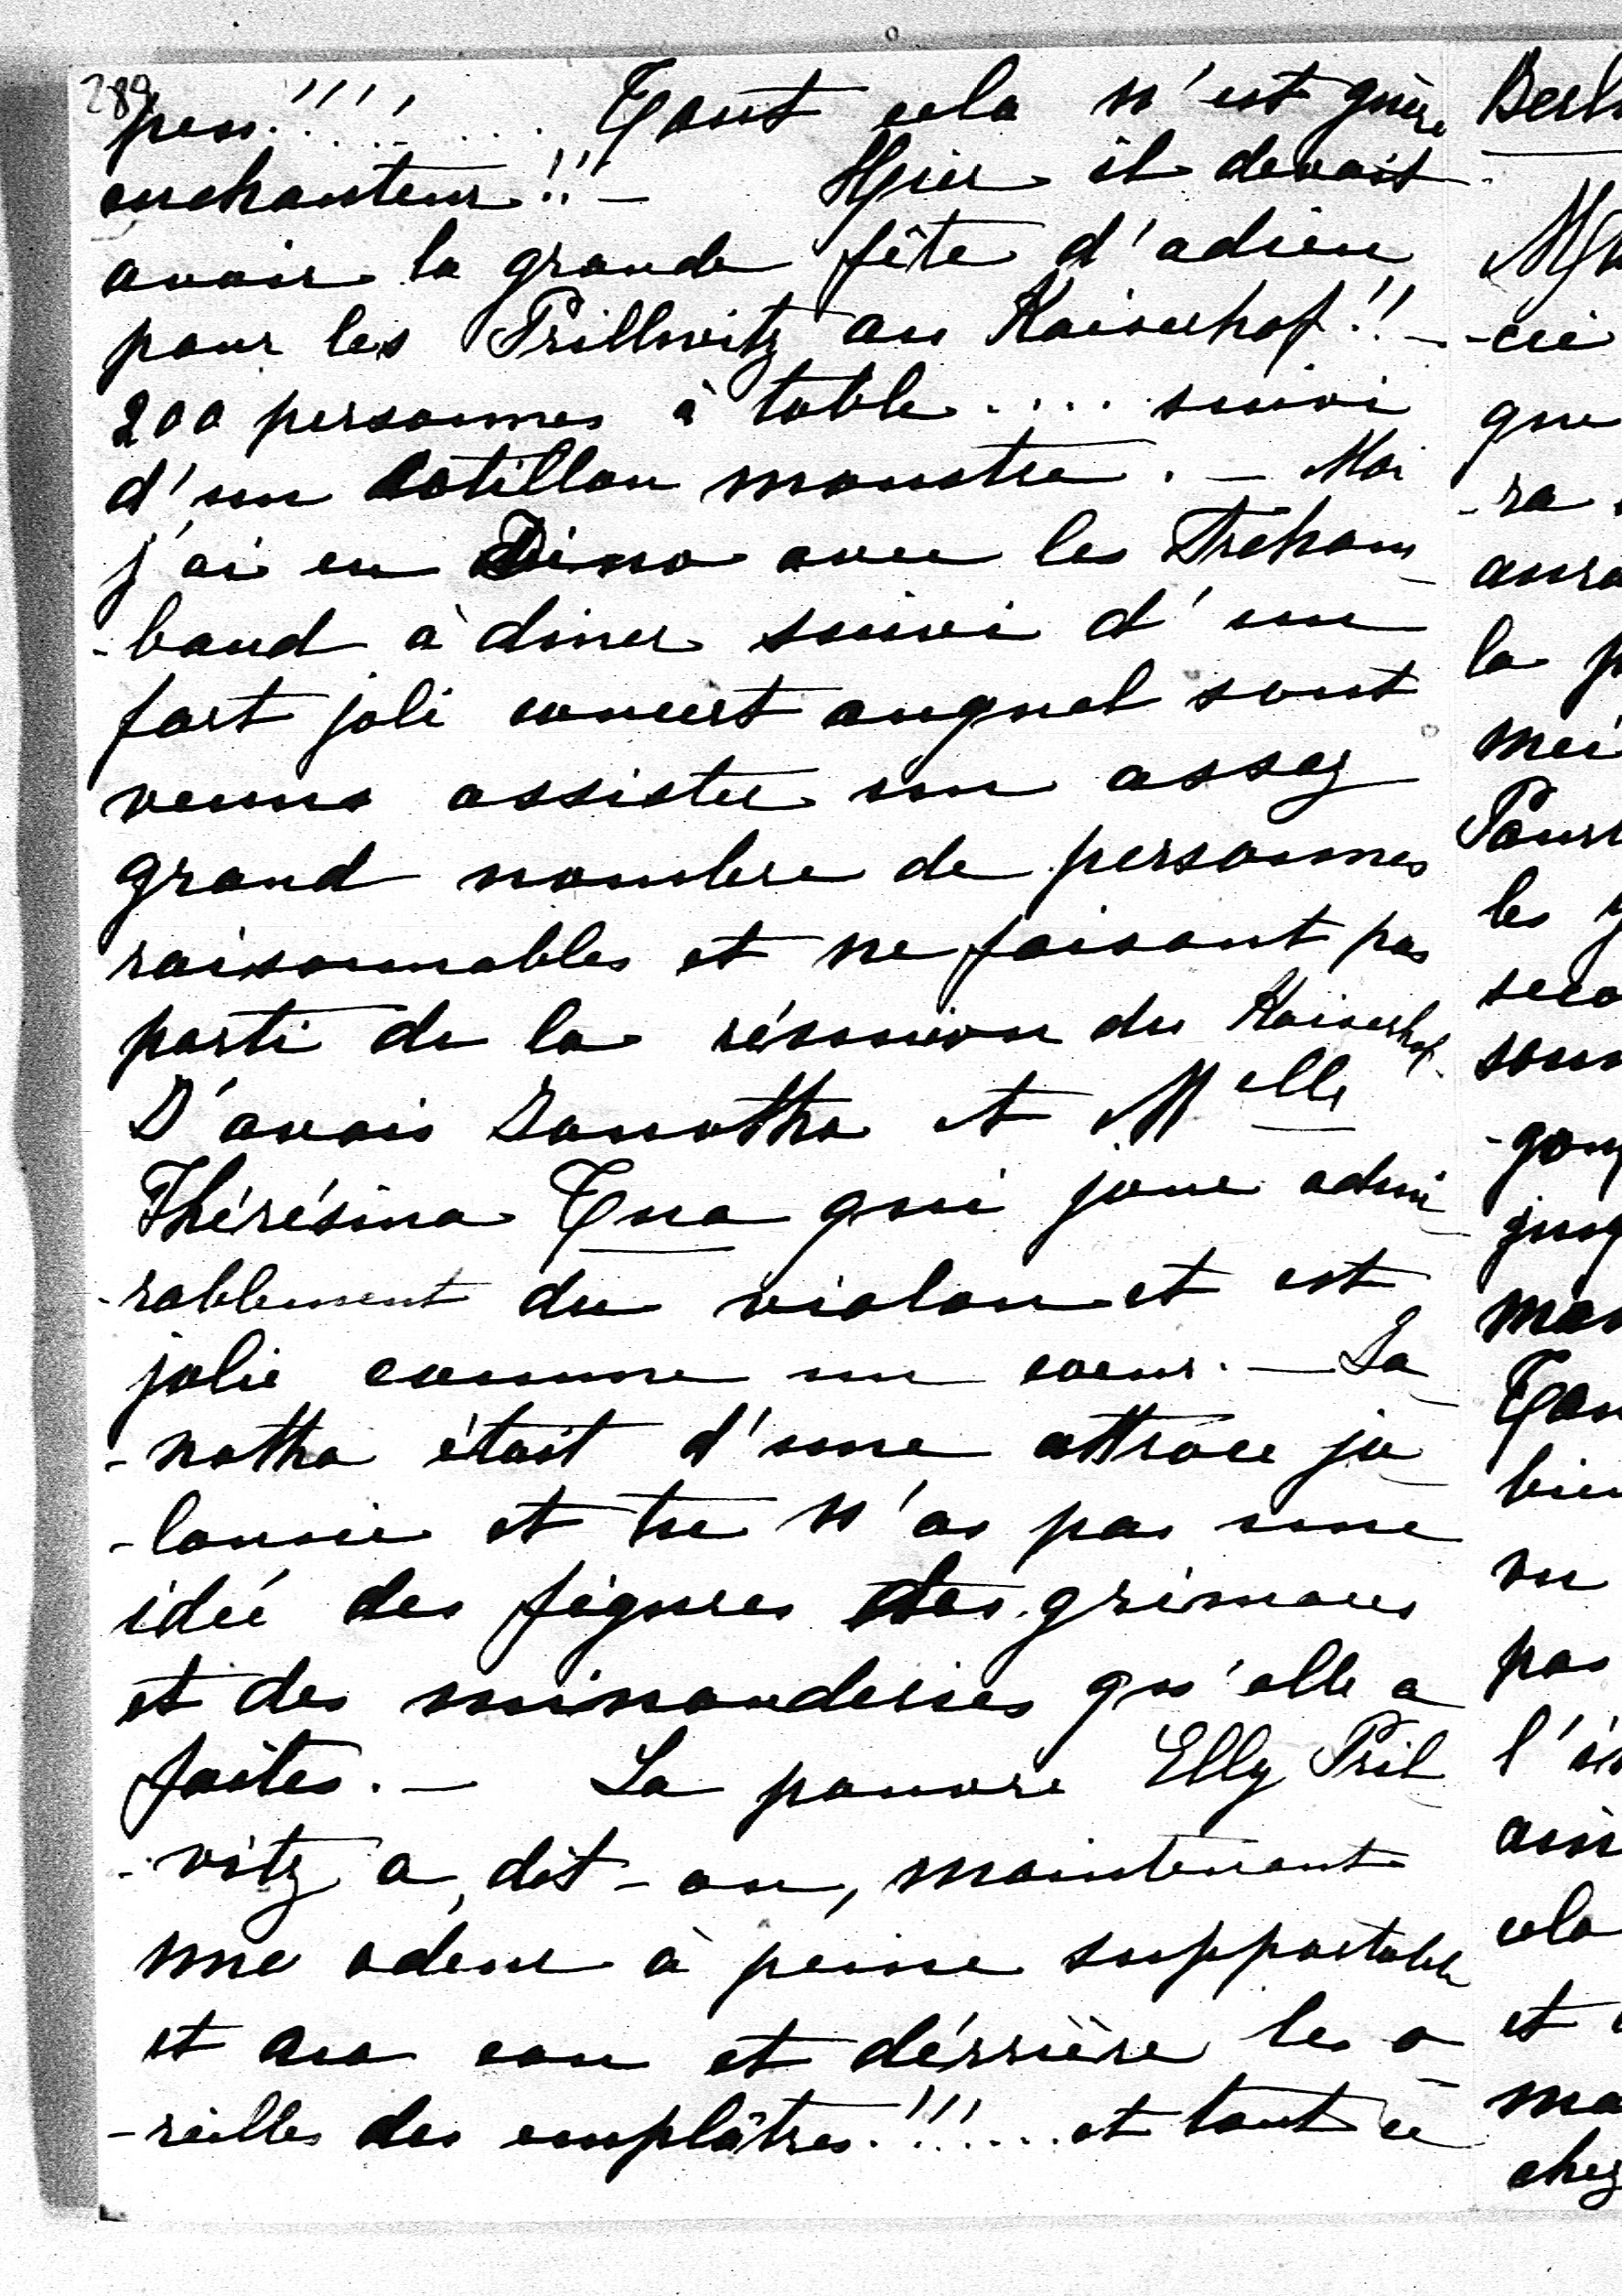 289
peu!!!!..... Tout cela n'est guère
enchanteur!!- Hier il devait
avoir la grande fête d'adieu
pour les Prillwitz au Kaiserhof!!-
200 personnes à table.... suivi
d'un cotillon monstre. - Moi
j'ai eu Dino avec les Archam-
-baud à diner suivi d'un
fort joli concert auquel sont
venus assister un assez
grand nombre de personnes
raisonnables et ne faisant pas
parti de la réunion du Kaiserhof.
J'avais Janotha et Melle
Thérésina Tua qui joue admi-
-rablement du violon et est
jolie comme un coeur. - Ja-
-notha était d'une attroce ja-
-lousie et tu n'as pas une
idée des figures des grimaces
et des minauderies qu'elle a
faites. - La pauvre Elly Pril-
-vitz a, dit-on, maintenant
une odeur à peine supportable
et au cou et dérrière les o-
-reilles des emplâtres!!!.... et tout ce
Berl
-cié
que
-ra
aura
la p
mei
les
seco
-gon
bien
vu
pas
cela
et
ma
chez